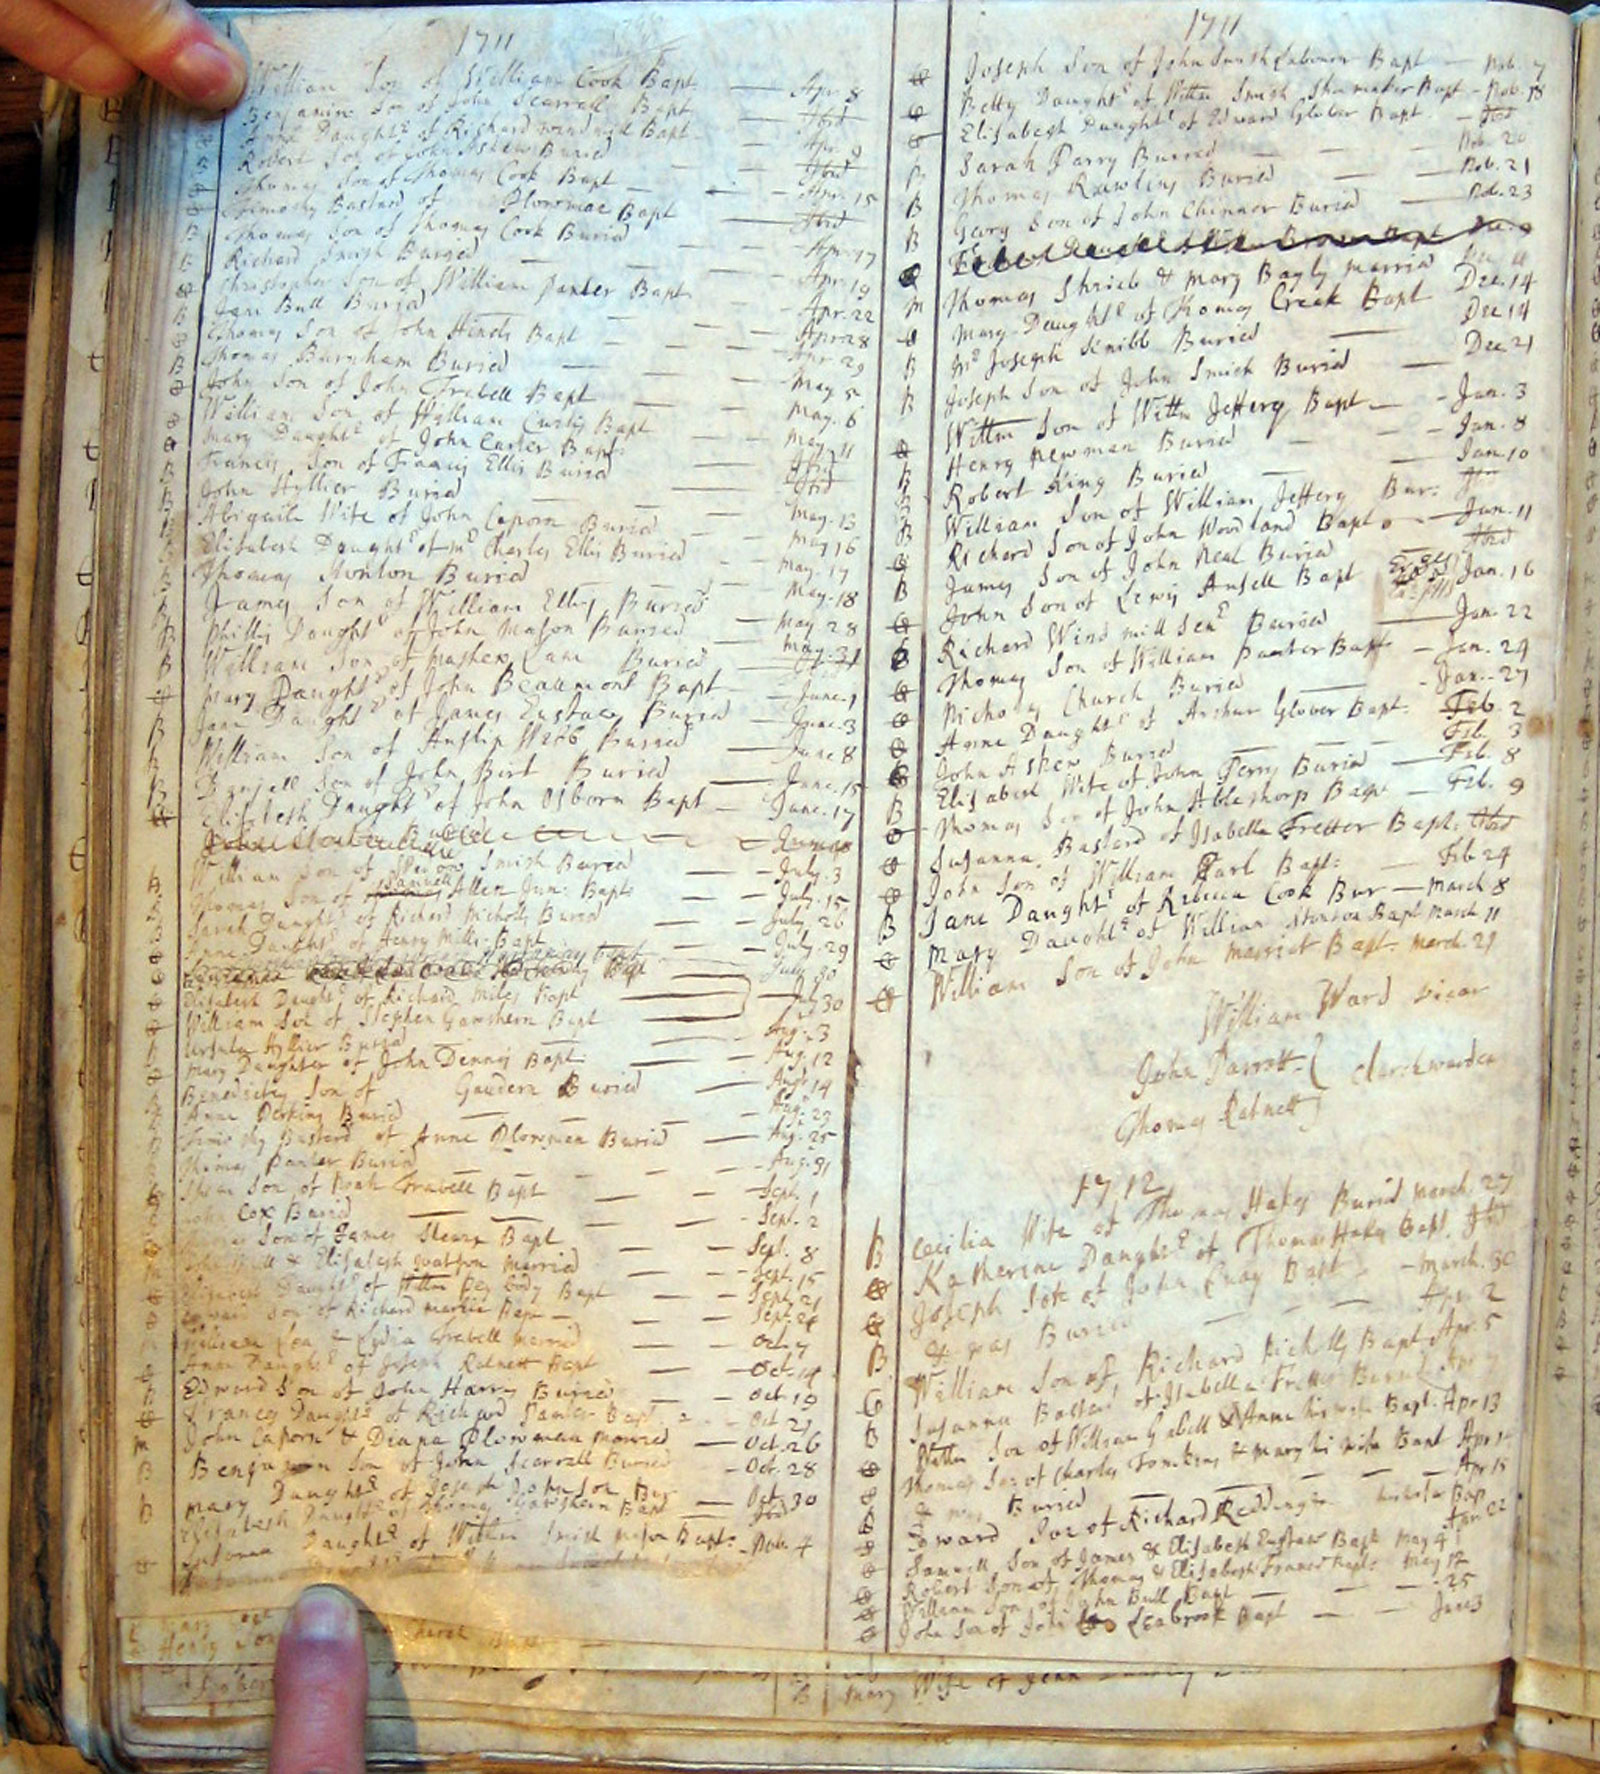 1711
William Son of William Cook Bapt Apr. 8
Benjamin Son of John Scarrall Bapt Ibid
Anne Daught.r of Richard windmill Bapt Apr. 9
Robert Son of John Askew Buried Ibid
Thomas Son of Thomas Cook Bapt Apr. 15
Timothy Bastard of Plowman Bapt Ibid
Thomas Son of Thomas Cook Buried Apr. 17
Richard Smith Buried Apr. 19
Christopher Son of William Panter Bapt Apr. 22
Jane Bull Buried Apr 28
Thomas Son of John Hinds Bapt Apr 29
Thomas Burnham Buried May 5
John Son of John Frabell Bapt May. 6
William Son of William Curtis Bapt May. 11
Mary Daught.r of John Carter Bapt Ibid
Francis Son of Francis Ellis Buried Ibid
John Hyllier Buried May. 13
Abigaile Wife of John Caporn Buried May 16
Elisabeth Daught.r of Mr Charles Ellis Buried May. 17
Thomas Buried May. 18
James Son of William Ellis Buried May 28
Phillis Daught.r of John Mason Buried May. 31
William Son of Buried
Mary Daught.r of John Beaumont Bapt June. 1
Jane Daught.r of James Eustace Buried June. 3
William Son of Austin Webb Buried June 8
Son of John Birt Buried June. 15
Elisabeth Daught.r of John Osborn Bapt June. 17
William Son of Smith Buried July. 3
Thomas Son of Samuel Allen Jun: Bapt July. 15
Sarah Daught.r of Richard Nicholls Buried July 26
Anne Daught.r of Henry Mills Bapt July. 29
July 30
Elisabeth Daught.r of Richard Miles Bapt July 30
William Son of Stephen Gawthern Bapt
Ursula Hyllier Buried Aug. 3
Mary Daughter of John Dennis Bapt: Aug. 12
Son of Gaudern Buried Aug. 14
Anne Perkins Buried Aug. 23
Timothy Bastard of Anne Plowman Buried Aug. 25
Thomas Panter Buried Aug. 31
Son of Noah Frabell Bapt Sept. 1
John Cox Buried Sept. 2
Son of James Bapt Sept. 8
& Elisabeth Watson married Sept. 15
Elisabeth Daught.r of Willm Bapt Sept. 21
Edward Son of Richard Bapt Sept. 26
William & Lydia Frabell Married Oct. 7
Anne Daught.r of Joseph Ratnett Bapt Oct. 14
Edward Son of John Harris Buried Oct. 19
Frances Daught.r of Richard Panter Bapt. Oct. 21
John Caporn & Diana Plowman Married Oct. 26
Benjamin Son of John Scarrall Buried Oct. 28
Mary Daught.r of Joseph Johnson Bur Oct. 30
Elisabeth Daught.r of Thomas Gawthern Bapt Ibid
Susanna Daught.r of Willm Smith mason Bapt: Nov. 4
1711
Joseph Son of John Smith Labourer Bapt Nov. 7
Betty Daught.r of Willm Smith Shoemaker Bapt Nov. 18
Elisabeth Daught.r of Edward Glover Bapt. Ibd
Sarah Parry Buried Nov. 20
Thomas Rawlins Buried Nov. 21
Gery Son of John Chinner Buried Nov. 23
Thomas Shrieb & Mary Bayly Married
Mary Daught.r of Thomas Creek Bapt Dec. 14
Mr Joseph Scribb Buried Dec 14
Joseph Son of John Smith Buried Dec. 21
Willm Son of Willm Jeffery Bapt Jan. 3
Henry Newman Buried Jan. 8
Robert King Buried Jan. 10
William Son of William Jeffery Bur: Ibd
Richard Son of John Woodland Bapt Jan. 11
James Son of John Neal Buried Ibid
John Son of Lewis Ansell Bapt Jan. 16
Richard Windmill Sen.r Buried Jan. 22
Thomas Son of William Panter Bapt Jan. 24
Nicholas Church Buried Jan. 27
Anne Daught.r of Arthur Glover Bapt. Feb. 2
John Askew Buried Feb. 3
Elisabeth Wife of John Perry Buried Feb. 8
Thomas Son of John Ablethorp Bapt Feb. 9
Susanna Bastard of Isabella Fretter Bapt: Ibd
John Son of William Earl Bapt: Feb 24
Jane Daught.r of Rebecca Cook Bur March 8
Mary Daught.r of William Bapt March 11
William Son of John Marriot Bapt. March. 21
William Ward Vicar
John Parrott
Thomas Ratnett
Churchwarden
1712
Cecilia Wife of Thomas Hakes Buried March. 27
Katherine Daught.r of Thomas Hakes Bapt. Ibd
Joseph Son of John Quay Bapt March. 30
& was Buried Apr. 2
William Son of Richard Nicholls Bapt Apr. 5
Susanna Bastard of Isabella Fretter Buried Apr
Willm Son of William Gabell & Anne his wife Bapt. Apr 13
Thomas Son of Charles Tomkins & Mary his wife Bapt Apr 1
& was Buried Apr 15
Edward Son of Richard Redding Bap Apr 22
Samuell Son of James & Elisabeth Eustace Bapt May 4
Robert Son of Thomas & Elisabeth Bapt: May 12
William Son of John Bull Bapt 25
John Son of John Leabrook Bapt June 3
Mary Wife of John